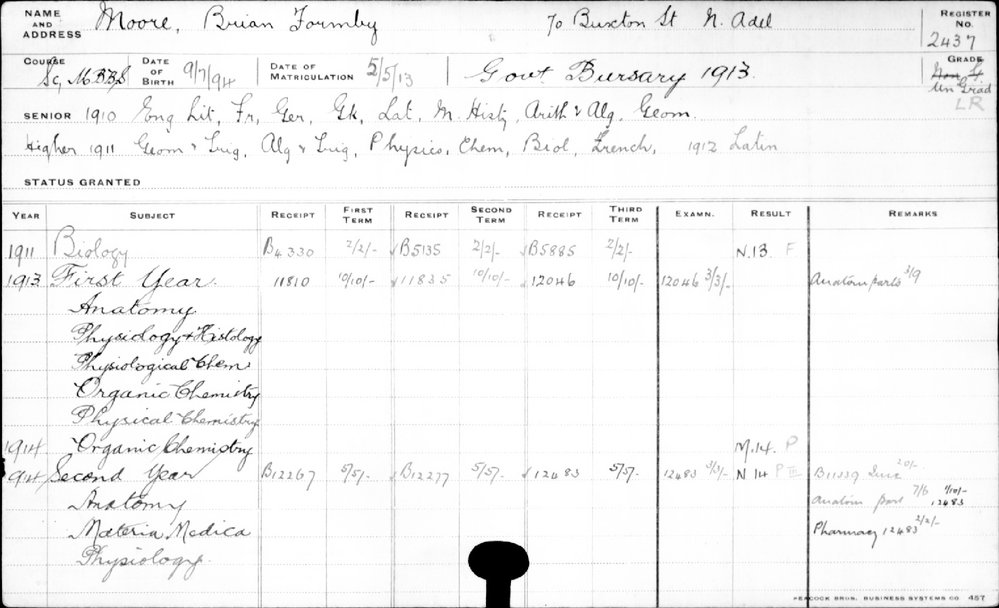 NAME AND ADDRESS Moore, Brian Formby 70 Buxton St N. Adel REGISTER No. 2437
COURSE Sc, M.B.B.S DATE OF BIRTH 9/7/94 DATE OF MATRICULATION 5/5/13 Govt Bursary 1913. GRADE Non G Un Grad LR
SENIOR 1910 Eng Lit, Fr, Ger, Gk, Lat, M. Histy, Arith & Alg, Geom
Higher 1911 Geom & Trig, Alg & Trig, Physics, Chem, Biol, French, 1912 Latin
STATUS GRANTED
YEAR SUBJECT RECEIPT FIRST TERM RECEIPT SECOND TERM RECEIPT THIRD TERM EXAMN. RESULT REMARKS
1911 Biology B4330 2/2/- B5135 2/2/- B5885 2/2/- N.13 F
1913 First Year 11810 10/10/- 11835 10/10/- 12046 10/10/- 12046 3/3/- Anatom parts 3/9
Anatomy
Physiology & Histology
Physiological Chem
Organic Chemistry
Physical Chemistry
1914 Organic Chemistry M.14. P
1914 Second Year B12267 5/5/- B12277 5/5/- 12483 5/5/- 12483 3/3/- N 14 P III B11339 20/-
Anatomy Anatom part 7/6 1/10/- 12483
Materia Medica Pharmacy 12483 2/2/-
Physiology
PEACOCK BROS. BUSINESS SYSTEMS CO 457